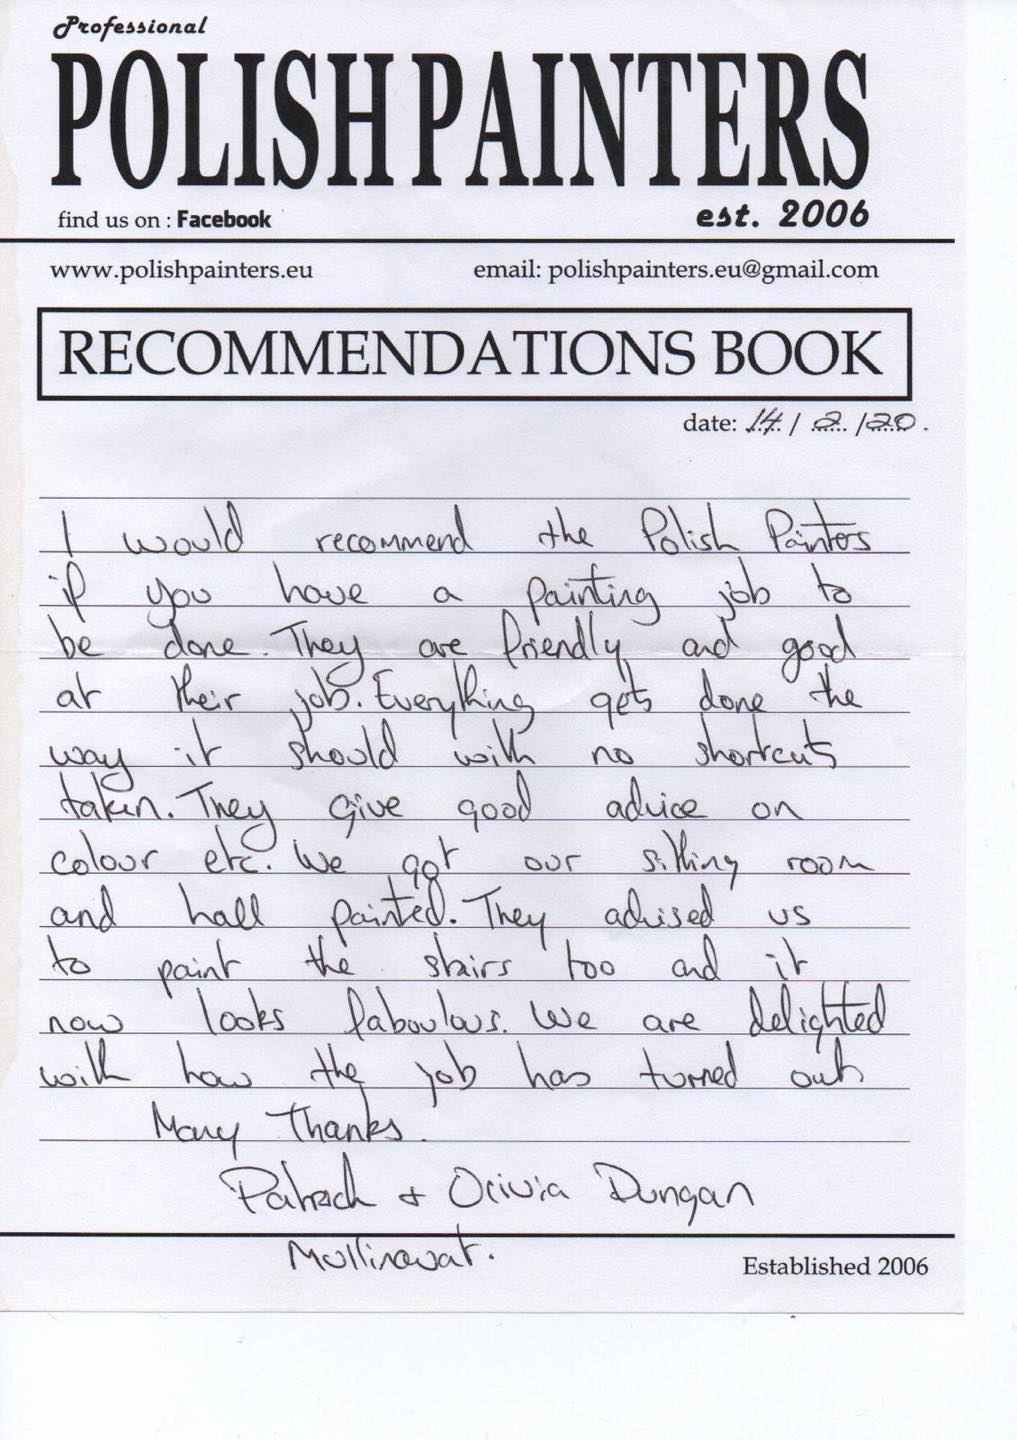 Professional
POLISH PAINTERS
find us on : Facebook
est. 2006
www.polishpainters.eu
email: polishpainters.eu@gmail.com
RECOMMENDATIONS BOOK
date: 14 / 2 / 20 .
I would recommend the Polish Painters
if you have a painting job to
be done. They are friendly and good
at their job. Everything gets done the
way it should with no shortcuts
taken. They give good advice on
colour etc. We got our sitting room
and hall painted. They advised us
to paint the stairs too and it
now looks faboulous. We are delighted
with how the job has turned out
Many Thanks.
Patrick + Olivia Dungan
Mullinavat.
Established 2006